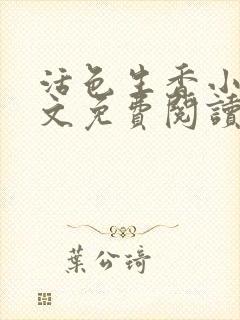 活色生香小
文免費閱讀
葉公琦